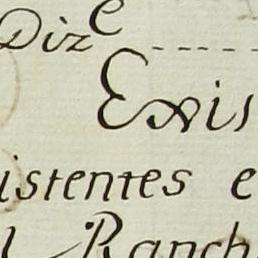 Dizᵉ ----
Exis
istentes e
l Ranch